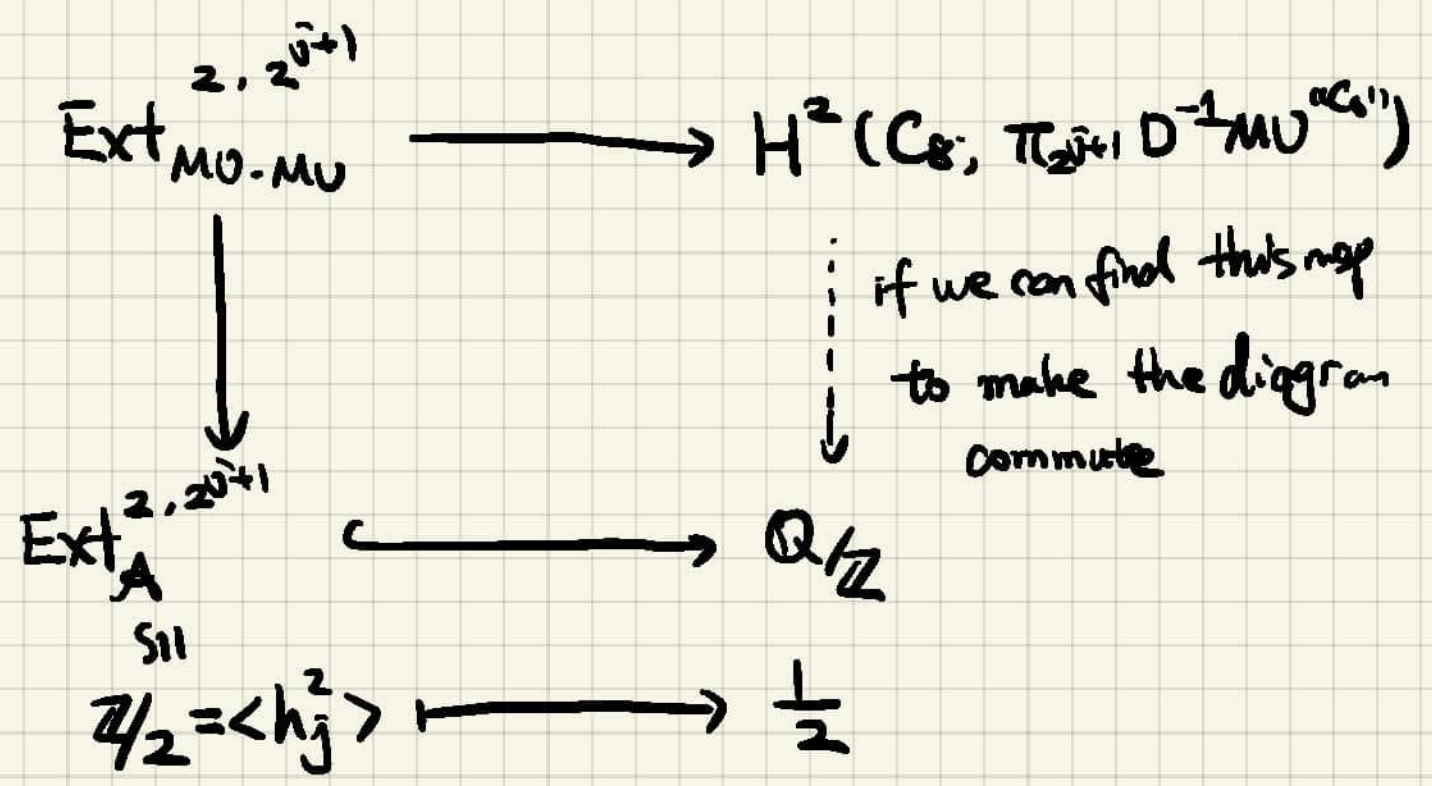 Ext_{MU_*MU}^{2, 2^{j+1}} ⟶ H^2(C_8; π_{2^{j+1}} D^{-1}MU^{((C_8))})
if we can find this map
to make the diagram
commute
Ext_A^{2, 2^{j+1}} ↪ Q/Z
SII
Z/2 = <h_j^2> ⟼ 1/2